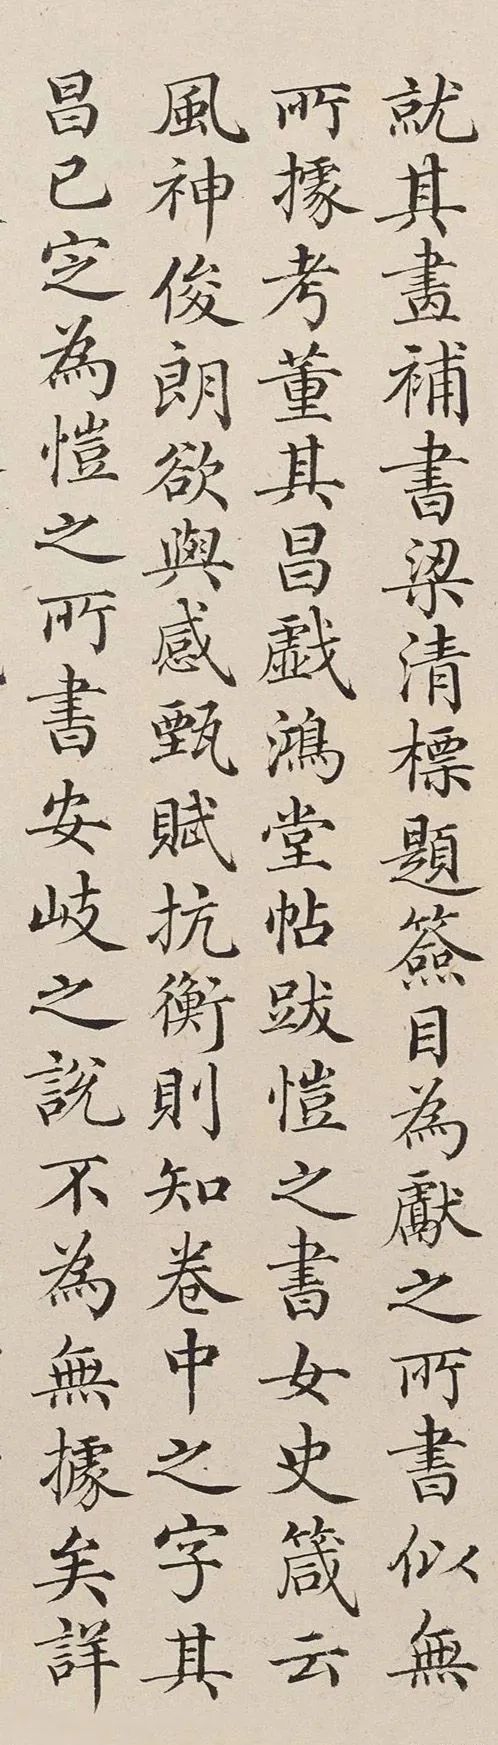 就其畫補書梁清標題簽目為獻之所書似無
所據考董其昌戲鴻堂帖跋愷之書女史箴云
風神俊朗欲與感甄賦抗衡則知卷中之字其
昌已定為愷之所書安岐之說不為無據矣詳